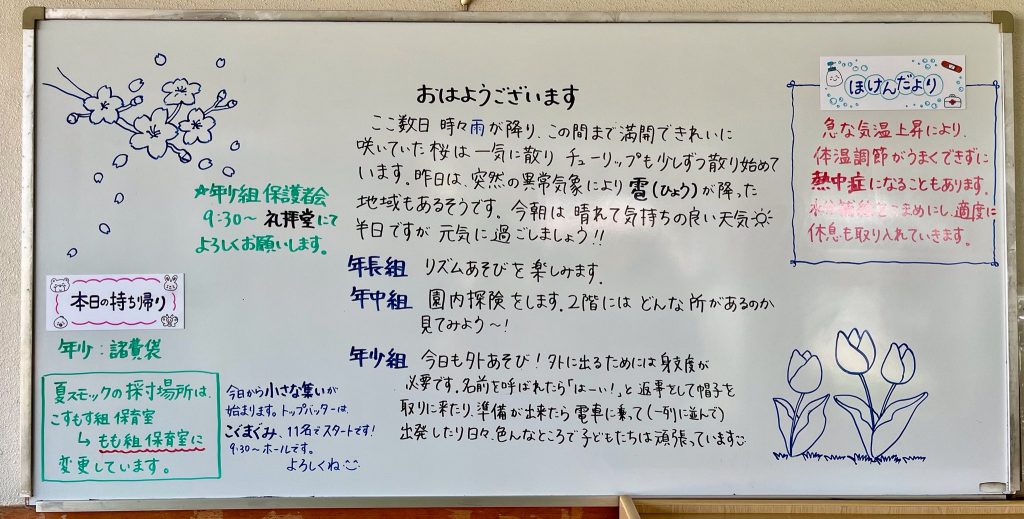 おはようございます
ここ数日 時々雨が降り、この間まで満開できれいに
咲いていた桜は一気に散り チューリップも少しずつ散り始めて
います。昨日は、突然の異常気象により雹(ひょう)が降った
地域もあるそうです。今朝は晴れて気持ちの良い天気
半日ですが 元気に過ごしましょう!!
年長組 リズムあそびを楽しみます。
年中組 園内探険をします。2階には どんな所があるのか
見てみよう〜!
年少組 今日も外あそび!外に出るためには身支度が
必要です。名前を呼ばれたら「はーい!」と返事をして帽子を
取りに来たり、準備が出来たら電車に乗って(一列に並んで)
出発したり日々、色んなところで子どもたちは頑張っています
☆年少組 保護者会
9:30〜 礼拝堂にて
よろしくお願いします。
本日の持ち帰り
年少:諸費袋
夏スモックの採寸場所は、
こすもす組 保育室
↳もも組 保育室に
変更しています。
今日から小さな集いが
始まります。トップバッターは、
こぐまぐみ、11名でスタートです!
9:30〜ホールです。
よろしくね
ほけんだより
急な気温上昇により、
体温調節がうまくできずに
熱中症になることもあります。
水分補給をこまめにし、適度に
休息も取り入れていきます。